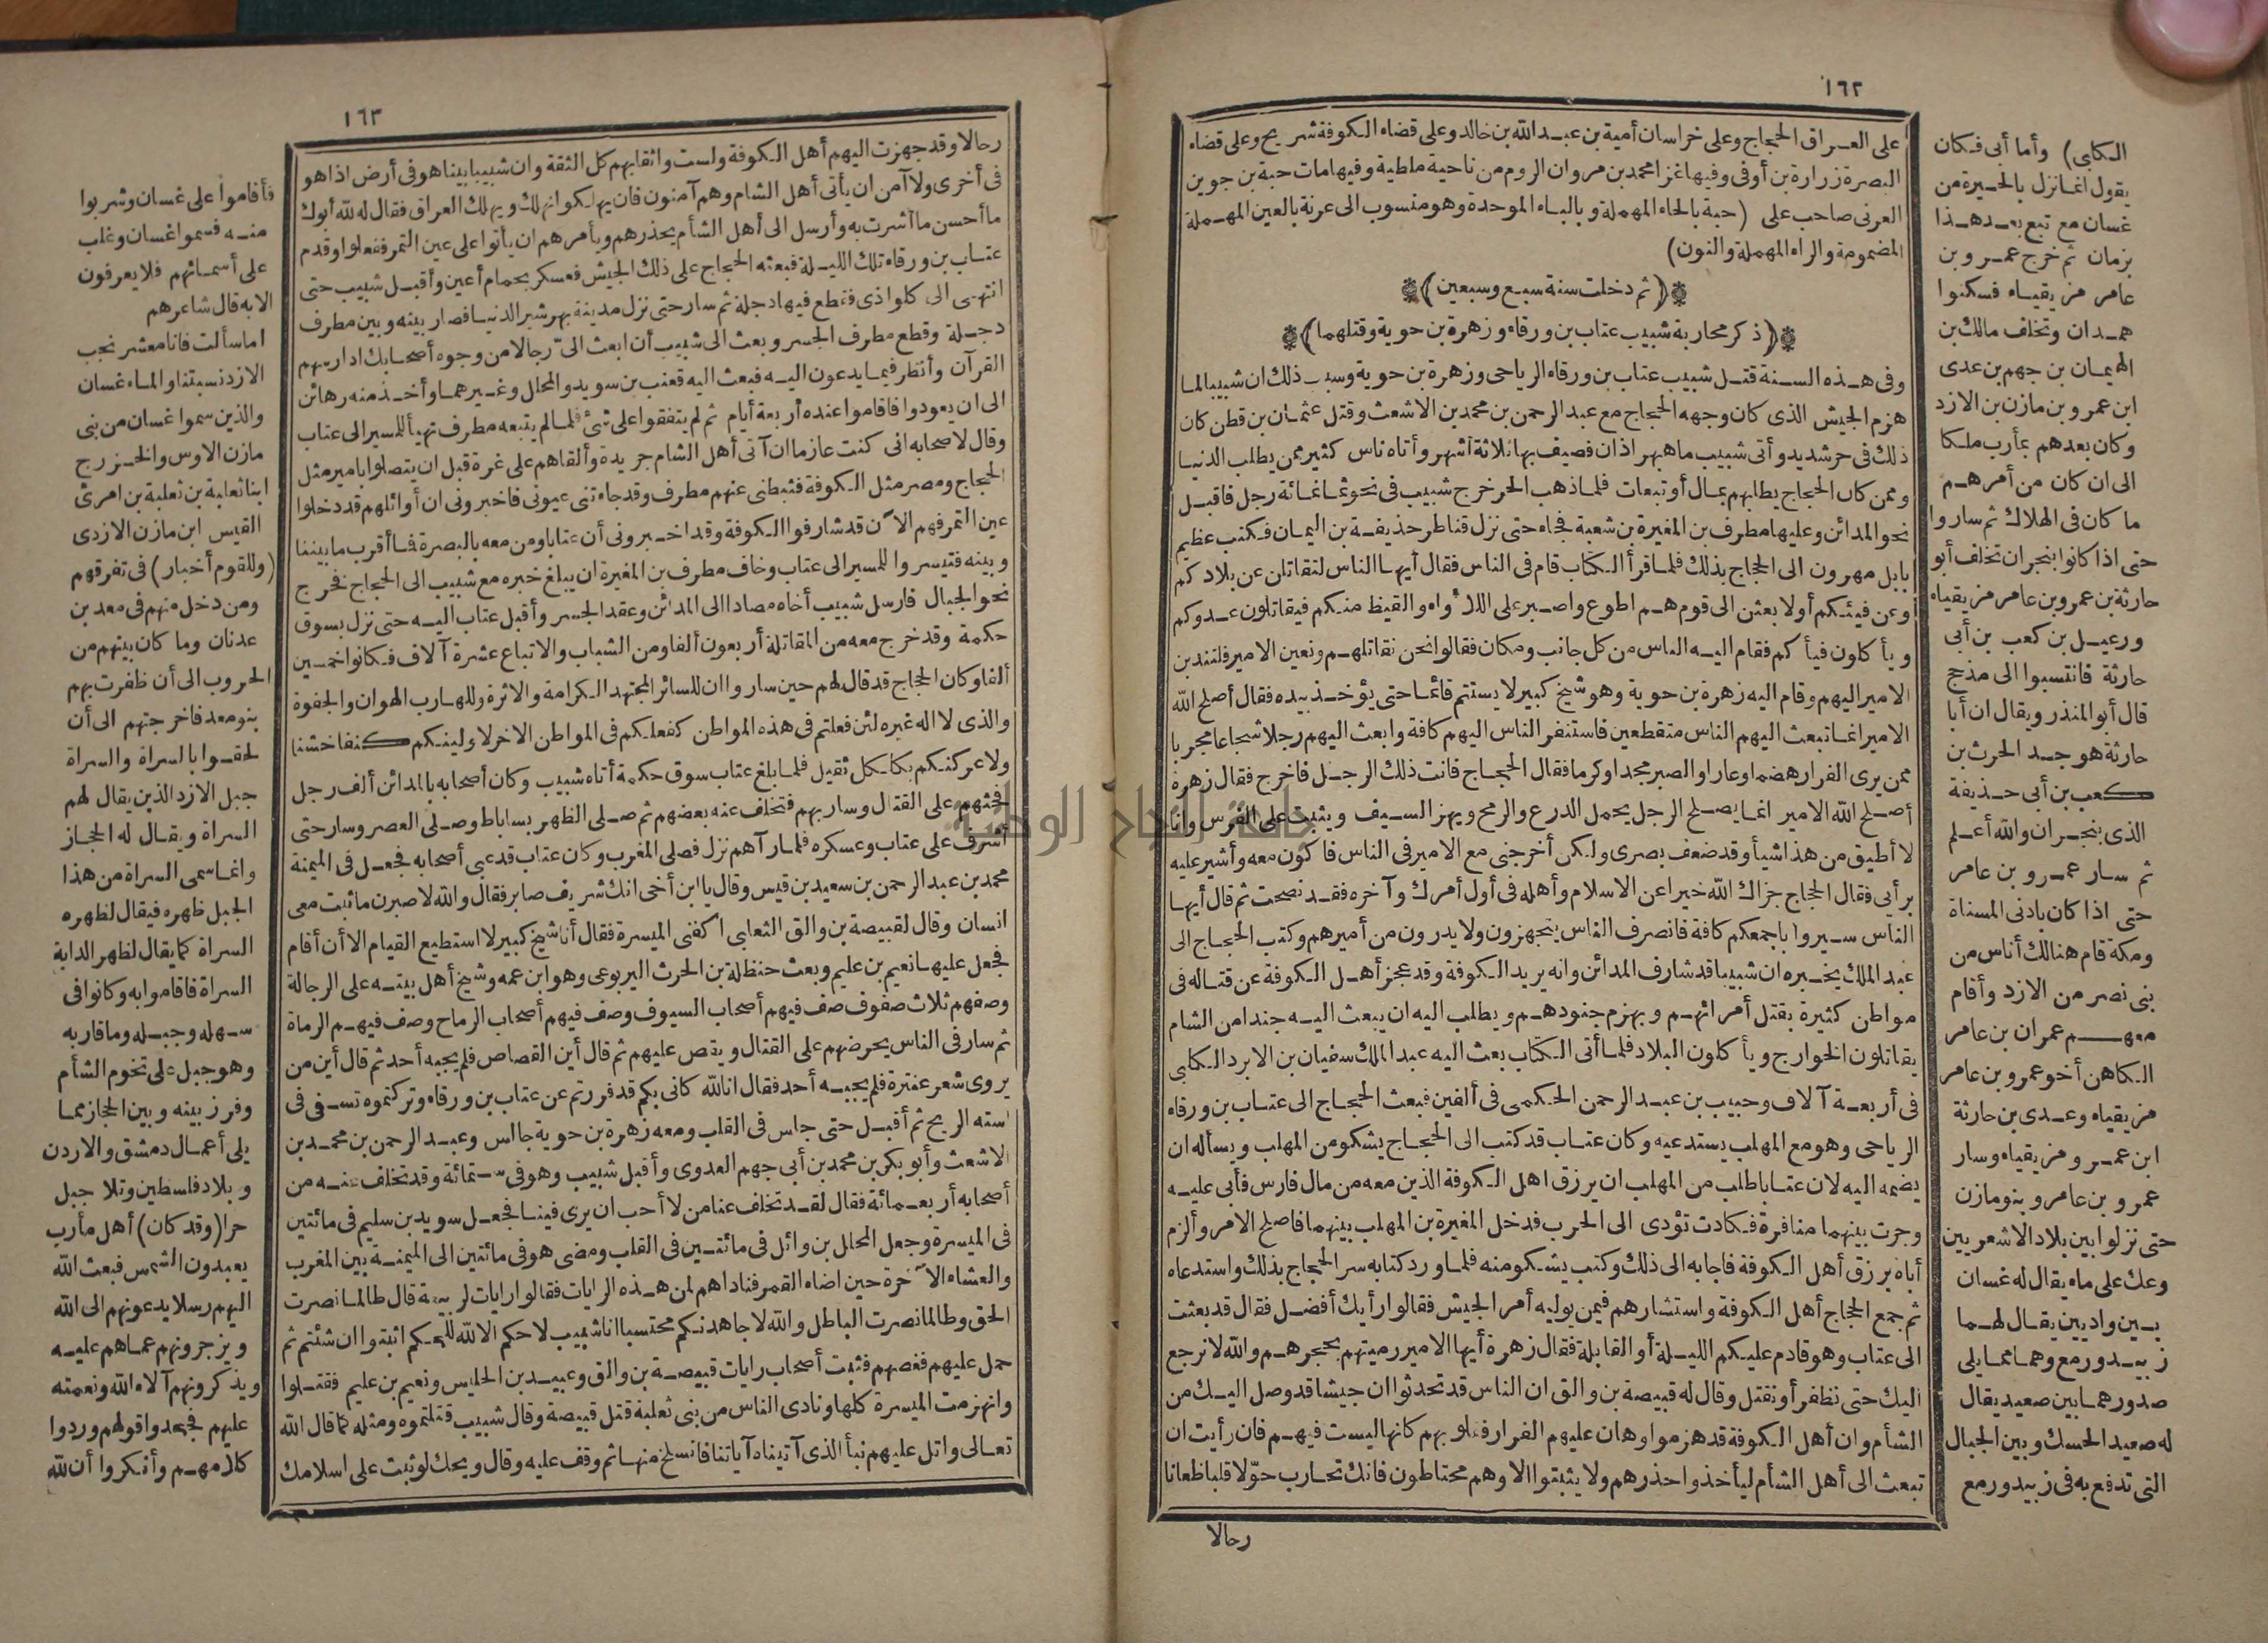 ١٦٢
على العراق الحجاج وعلى خراسان أمية بن عبد الله بن خالد وعلى قضاء الكوفة شريح وعلى قضاء
البصرة زرارة بن أوفى وفيها غزا محمد بن مروان الروم من ناحية ملطية وفيها مات حبة بن جوين
العرنى صاحب على (حبة بالحاء المهملة وبالباء الموحدة وهو منسوب الى عرنة بالعين المهملة
المضمومة والراء المهملة والنون)
(ثم دخلت سنة سبع وسبعين)
(ذكر محاربة شبيب عتاب بن ورقاء وزهرة بن حوية وقتلهما)
وفى هذه السنة قتل شبيب عتاب بن ورقاء الرياحى وزهرة بن حوية وسبب ذلك ان شبيبا لما
هزم الجيش الذى كان وجهه الحجاج مع عبد الرحمن بن محمد بن الاشعث وقتل عثمان بن قطن كان
ذلك فى حر شديد وأتى شبيب ماه بهراذان فصيف بها ثلاثة أشهر وأتاه ناس كثير ممن يطلب الدنيا
وممن كان الحجاج يطلبهم بمال أو تبعات فلما ذهب الحر خرج شبيب فى نحو ثمانمائة رجل فاقبل
نحو المدائن وعليها مطرف بن المغيرة بن شعبة فجاء حتى نزل قناطر حذيفة بن اليمان فكتب عظيم
بابل مهرون الى الحجاج بذلك فلما قرأ الكتاب قام فى الناس فقال أيها الناس لتقاتلن عن بلادكم
وعن فيئكم أو لابعثن الى قوم هم اطوع واصبر على اللاواء والقيظ منكم فيقاتلون عدوكم
ويأكلون فيأكم فقام اليه الناس من كل جانب ومكان فقالوا نحن نقاتلهم ونعين الامير فلتندبن
الامير اليهم وقام اليه زهرة بن حوية وهو شيخ كبير لا يستتم قائما حتى يؤخذ بيده فقال أصلح الله
الامير انما تبعث اليهم الناس متقطعين فاستنفر الناس اليهم كافة وابعث اليهم رجلا شجاعا مجربا
ممن يرى الفرار هضما وعارا والصبر مجدا وكرما فقال الحجاج فانت ذلك الرجل فاخرج فقال زهرة
أصلح الله الامير انما يصلح الرجل يحمل الدرع والرمح ويهز السيف ويثبت على الفرس وأنا
لا أطيق من هذا شيأ وقد ضعف بصرى ولكن أخرجنى مع الامير فى الناس فاكون معه وأشير عليه
برأيى فقال الحجاج جزاك الله خيرا عن الاسلام وأهله فى أول أمرك وآخره فقد نصحت ثم قال أيها
الناس سيروا باجمعكم كافة فانصرف الناس يتجهزون ولا يدرون من أميرهم وكتب الحجاج الى
عبد الملك يخبره ان شبيبا قد شارف المدائن وانه يريد الكوفة وقد عجز أهل الكوفة عن قتاله فى
مواطن كثيرة بقتل أمرائهم ويهزم جنودهم ويطلب اليه ان يبعث اليه جندا من الشام
يقاتلون الخوارج ويأكلون البلاد فلما أتى الكتاب بعث اليه عبد الملك سفيان بن الابرد الكلبى
فى أربعة آلاف وحبيب بن عبد الرحمن الحكمى فى ألفين فبعث الحجاج الى عتاب بن ورقاء
الرياحى وهو مع المهلب يستدعيه وكان عتاب قد كتب الى الحجاج يشكو من المهلب ويسأله ان
يضمه اليه لان عتابا طلب من المهلب ان يرزق اهل الكوفة الذين معه من مال فارس فأبى عليه
وجرت بينهما منافرة فكادت تؤدى الى الحرب فدخل المغيرة بن المهلب بينهما فاصلح الامر وألزم
أباه برزق أهل الكوفة فاجابه الى ذلك وكتب يشكو منه فلما ورد كتابه سر الحجاج بذلك واستدعاه
ثم جمع الحجاج أهل الكوفة واستشارهم فيمن يوليه أمر الجيش فقالوا رأيك أفضل فقال قد بعثت
الى عتاب وهو قادم عليكم الليلة أو القابلة فقال زهرة أيها الامير رميتهم بحجرهم والله لا نرجع
اليك حتى نظفر أو نقتل وقال له قبيصة بن والق ان الناس قد تحدثوا ان جيشا قد وصل اليك من
الشأم وان أهل الكوفة قد هزموا وهان عليهم الفرار فقلوبهم كانها ليست فيهم فان رأيت ان
تبعث الى أهل الشأم ليأخذوا حذرهم ولا يثبتوا الا وهم محتاطون فانك تحارب حوّلا قلبا ظعانا
رحالا
الكلبى) وأما أبى فكان
يقول انما نزل بالحيرة من
غسان مع تبع بعد هذا
بزمان ثم خرج عمرو بن
عامر مزيقياء فسكنوا
همدان وتخلف مالك بن
الهيمان بن جهم بن عدى
ابن عمرو بن مازن بن الازد
وكان بعدهم بمأرب ملكا
الى ان كان من أمرهم
ما كان فى الهلاك ثم ساروا
حتى اذا كانوا بنجران تخلف أبو
حارثة بن عمرو بن عامر مزيقياء
ورعيل بن كعب بن أبى
حارثة فانتسبوا الى مذحج
قال أبو المنذر ويقال ان أبا
حارثة هو جد الحرث بن
كعب بن أبى حذيفة
الذى بنجران والله أعلم
ثم سار عمرو بن عامر
حتى اذا كان بادنى المسناة
ومكة قام هنالك أناس من
بنى نصر من الازد وأقام
معهم عمران بن عامر
الكاهن أخو عمرو بن عامر
مزيقياء وعدى بن حارثة
ابن عمرو مزيقياء وسار
عمرو بن عامر وبنو مازن
حتى نزلوا بين بلاد الاشعريين
وعك على ماء يقال له غسان
بين واديين يقال لهما
زبيد ورمع وهما مما يلى
صدورهما بين صعيد يقال
له صعيد الحسك وبين الجبال
التى تدفع به فى زبيد ورمع
١٦٣
رحالا وقد جهزت اليهم أهل الكوفة ولست واثقا بهم كل الثقة وان شبيبا بينا هو فى أرض اذا هو
فى أخرى ولا آمن ان يأتى أهل الشام وهم آمنون فان يهلكوا نهلك ويهلك العراق فقال له لله أبوك
ما أحسن ما أشرت به وأرسل الى أهل الشأم يحذرهم ويأمرهم ان يأتوا على عين التمر ففعلوا وقدم
عتاب بن ورقاء تلك الليلة فبعثه الحجاج على ذلك الجيش فعسكر بحمام أعين وأقبل شبيب حتى
انتهى الى كلواذى فقطع فيها دجلة ثم سار حتى نزل مدينة بهرشير الدنيا فصار بينه وبين مطرف
دجلة وقطع مطرف الجسر وبعث الى شبيب أن ابعث الىّ رجالا من وجوه أصحابك ادارسهم
القرآن وأنظر فيما يدعون اليه فبعث اليه قعنب بن سويد والمحلل وغيرهما وأخذ منه رهائن
الى ان يعودوا فاقاموا عنده أربعة أيام ثم لم يتفقوا على شئ فلما لم يتبعه مطرف تهيأ للمسير الى عتاب
وقال لاصحابه انى كنت عازما ان آتى أهل الشام جريدة وألقاهم على غرة قبل ان يتصلوا بامير مثل
الحجاج ومصر مثل الكوفة فثبطنى عنهم مطرف وقد جاءتنى عيونى فاخبرونى ان أوائلهم قد دخلوا
عين التمر فهم الآن قد شارفوا الكوفة وقد اخبرونى أن عتابا ومن معه بالبصرة فما أقرب ما بيننا
وبينه فتيسروا للمسير الى عتاب وخاف مطرف بن المغيرة ان يبلغ خبره مع شبيب الى الحجاج فخرج
نحو الجبال فارسل شبيب أخاه مصادا الى المدائن وعقد الجسر وأقبل عتاب اليه حتى نزل بسوق
حكمة وقد خرج معه من المقاتلة أربعون ألفا ومن الشباب والاتباع عشرة آلاف فكانوا خمسين
ألفا وكان الحجاج قد قال لهم حين ساروا ان للسائر المجتهد الكرامة والاثرة وللهارب الهوان والجفوة
والذى لا اله غيره لئن فعلتم فى هذه المواطن كفعلكم فى المواطن الاخر لاولينكم كنفا خشنا
ولاعركنكم بكلكل ثقيل فلما بلغ عتاب سوق حكمة أتاه شبيب وكان أصحابه بالمدائن ألف رجل
فحثهم على القتال وسار بهم فتخلف عنه بعضهم ثم صلى الظهر بساباط وصلى العصر وسار حتى
أشرف على عتاب وعسكره فلما رآهم نزل فصلى المغرب وكان عتاب قد عبى أصحابه فجعل فى الميمنة
محمد بن عبد الرحمن بن سعيد بن قيس وقال يا ابن أخى انك شريف صابر فقال والله لاصبرن ما ثبت معى
انسان وقال لقبيصة بن والق الثعلبى اكفنى الميسرة فقال أنا شيخ كبير لا استطيع القيام الا أن أقام
فجعل عليها نعيم بن عليم وبعث حنظلة بن الحرث اليربوعى وهو ابن عمه وشيخ أهل بيته على الرجالة
وصفهم ثلاث صفوف صف فيهم أصحاب السيوف وصف فيهم أصحاب الرماح وصف فيهم الرماة
ثم سار فى الناس يحرضهم على القتال ويقص عليهم ثم قال أين القصاص فلم يجبه أحد ثم قال أين من
يروى شعر عنترة فلم يجبه أحد فقال انا لله كانى بكم قد فررتم عن عتاب بن ورقاء وتركتموه تسفى فى
استه الريح ثم أقبل حتى جلس فى القلب ومعه زهرة بن حوية جالس وعبد الرحمن بن محمد بن
الاشعث وأبو بكر بن محمد بن أبى جهم العدوى وأقبل شبيب وهو فى ستمائة وقد تخلف عنه من
أصحابه أربعمائة فقال لقد تخلف عنا من لا أحب ان يرى فينا فجعل سويد بن سليم فى مائتين
فى الميسرة وجعل المحلل بن وائل فى مائتين فى القلب ومضى هو فى مائتين الى الميمنة بين المغرب
والعشاء الآخرة حين اضاء القمر فناداهم لمن هذه الرايات فقالوا رايات لربيعة قال طالما نصرت
الحق وطالما نصرت الباطل والله لاجاهدنكم محتسبا انا شبيب لا حكم الا لله للحكم اثبتوا ان شئتم ثم
حمل عليهم ففضهم فثبت أصحاب رايات قبيصة بن والق وعبيد بن الحليس ونعيم بن عليم فقتلوا
وانهزمت الميسرة كلها ونادى الناس من بنى ثعلبة قتل قبيصة وقال شبيب قتلتموه ومثله كما قال الله
تعالى واتل عليهم نبأ الذى آتيناه آياتنا فانسلخ منها ثم وقف عليه وقال ويحك لو ثبت على اسلامك
فأقاموا على غسان وشربوا
منه فسموا غسان وغلب
على أسمائهم فلا يعرفون
الا به قال شاعرهم
اما سألت فانا معشر نجب
الازد نسبتنا والماء غسان
والذين سموا غسان من بنى
مازن الاوس والخزرج
ابنا ثعلبة بن ثعلبة بن امرئ
القيس ابن مازن الازدى
(وللقوم أخبار) فى تفرقهم
ومن دخل منهم فى معد بن
عدنان وما كان بينهم من
الحروب الى أن ظفرت بهم
بنو معد فاخرجتهم الى أن
لحقوا بالسراة والسراة
جبل الازد الذين يقال لهم
السراة ويقال له الحجاز
وانما سمى السراة من هذا
الجبل ظهره فيقال لظهره
السراة كما يقال لظهر الدابة
السراة فاقاموا به وكانوا فى
سهله وجبله وما قاربه
وهو جبل على تخوم الشأم
وفرز بينه وبين الحجاز مما
يلى أعمال دمشق والاردن
وبلاد فلسطين وتلا جبل
حرا (وقد كان) أهل مأرب
يعبدون الشمس فبعث الله
اليهم رسلا يدعونهم الى الله
ويزجرونهم عما هم عليه
ويذكرونهم آلاء الله ونعمته
عليهم فجحدوا قولهم وردوا
كلامهم وأنكروا أن لله
جامعة النجاح الوطنية